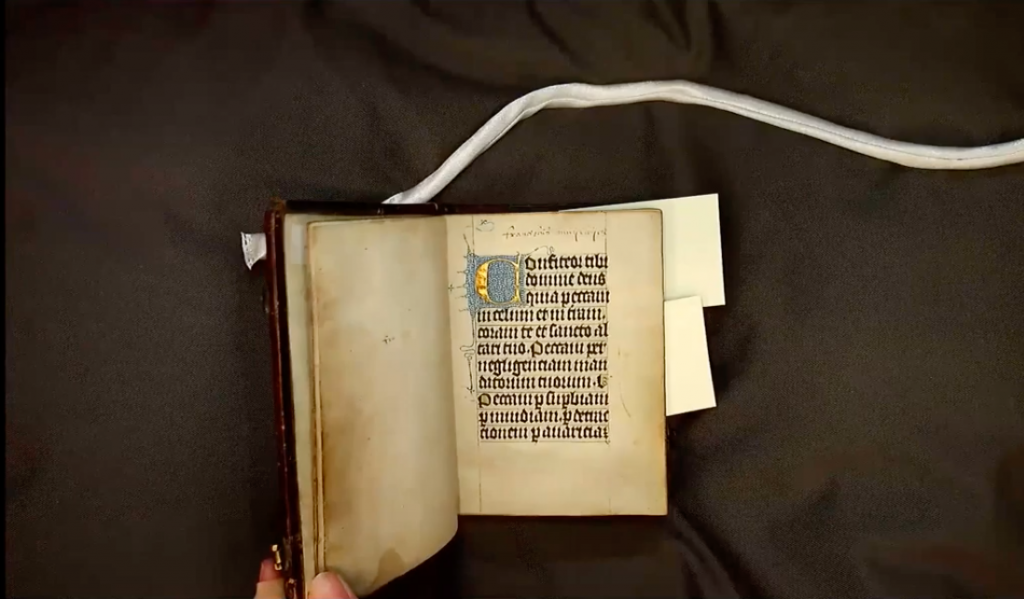 Confiteor tibi
domine deus
quia peccaui
in celum et in tram.
coram te et sancto al
tari tuo. Peccaui per
negligenciam man
datorum tuorum.
Peccaui p supbiam
p inuidiam. p detrac
tionem p auariciaz